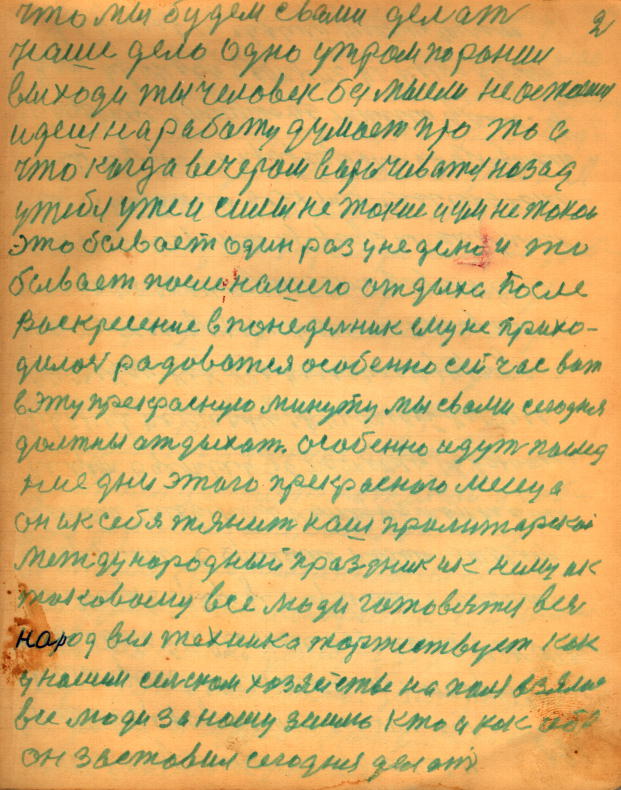 2
что мы будем свами делат
наше дело одно утром поранши
выходи ты человек бу мыели не
идеш на работу думает про то а
что когда вечером назад
у тебя уже и силы не такие и ум не такой
это бывает один раз у неделю и то
бывает после нашего отдыха После
Воскресение в понеделник ему не прихо-
дилос радоватся особенно сей час вот
в эту прекрасную минуту мы свами сегодня
должны атдыхат. особенно идут послед
ние дни этого прекрасного месеца
он ик себя тянит наш
международный праздник ик нему ик
таковому все люди готовятся вся
народ вся техника торжествует как
у нашим селском хозяйстве на поля взялис
все люди за нашу землю кто и как
он заставил сегодня делат